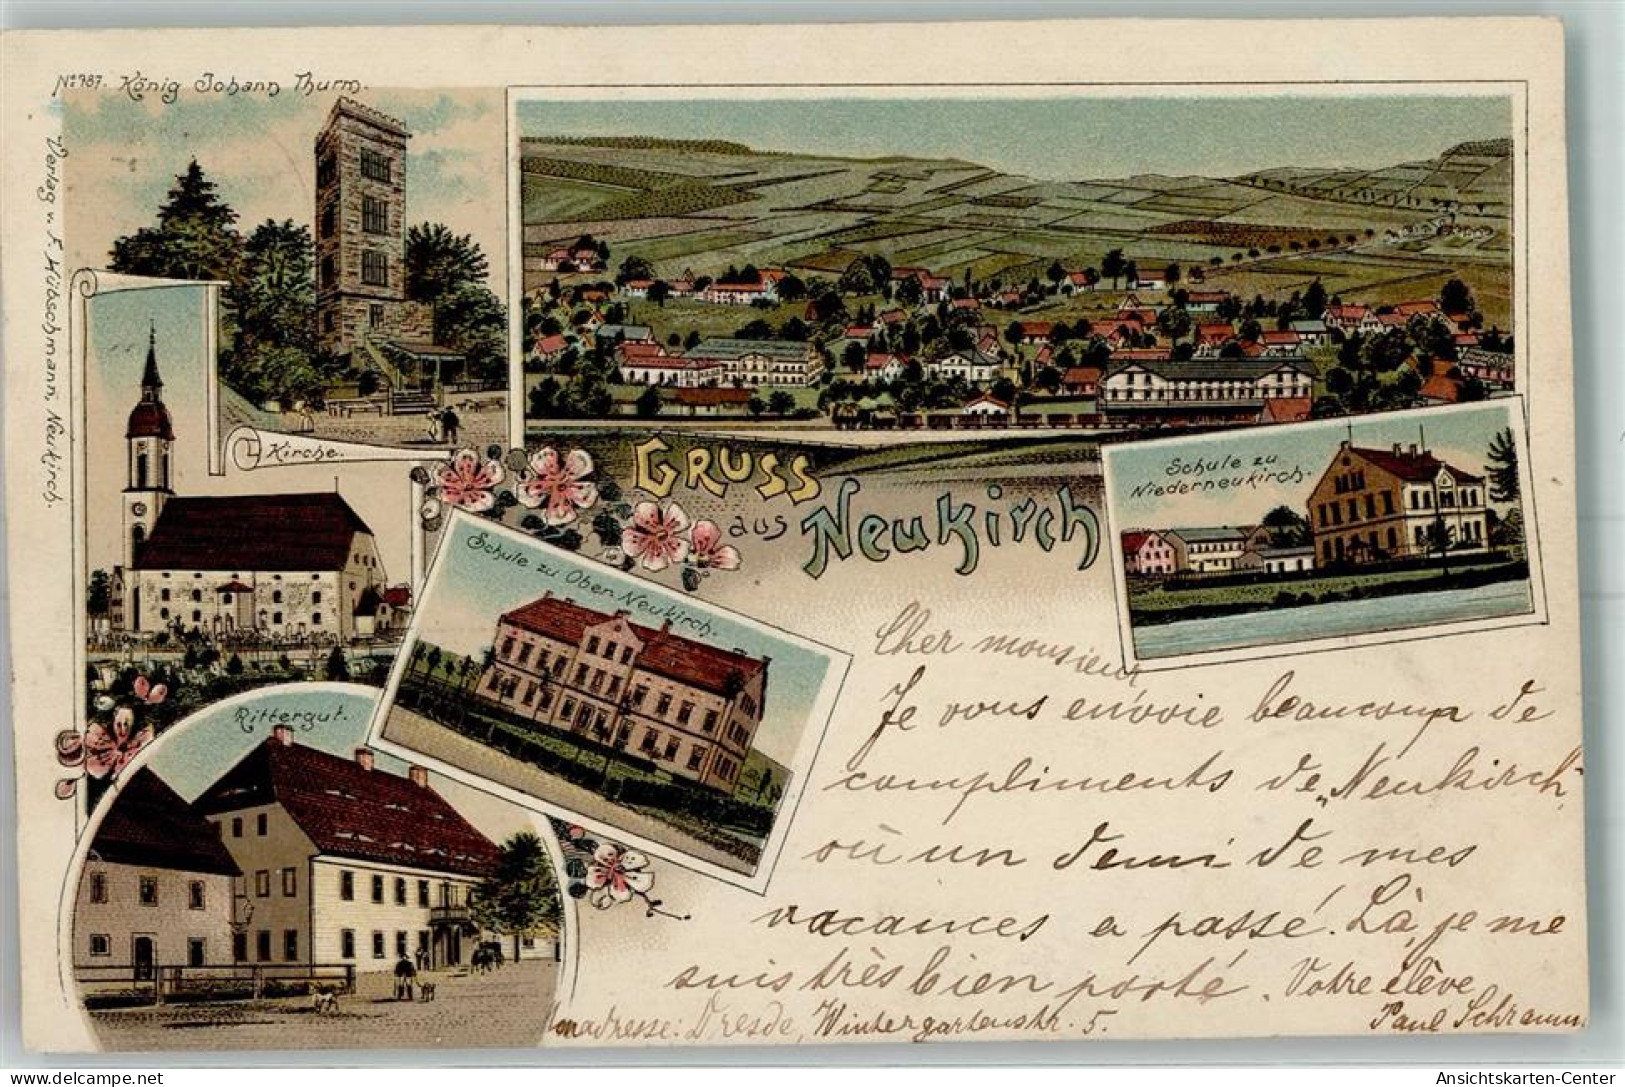 No 787. König Johann Thurm.
Verlag v. F. Hübschmann, Neukirch.
Kirche.
Gruss
aus Neukirch
Schule zu
Niederneukirch.
Schule zu Ober-Neukirch.
Rittergut.
Cher monsieur
Je vous envoie beaucoup de
compliments de „Neukirch,
où un demi de mes
vacances a passé. Là, je me
suis très bien porté. Votre élève
Paul Schramm
monadresse: Dresde, Wintergartenstr. 5.
Ansichtskarten-Center